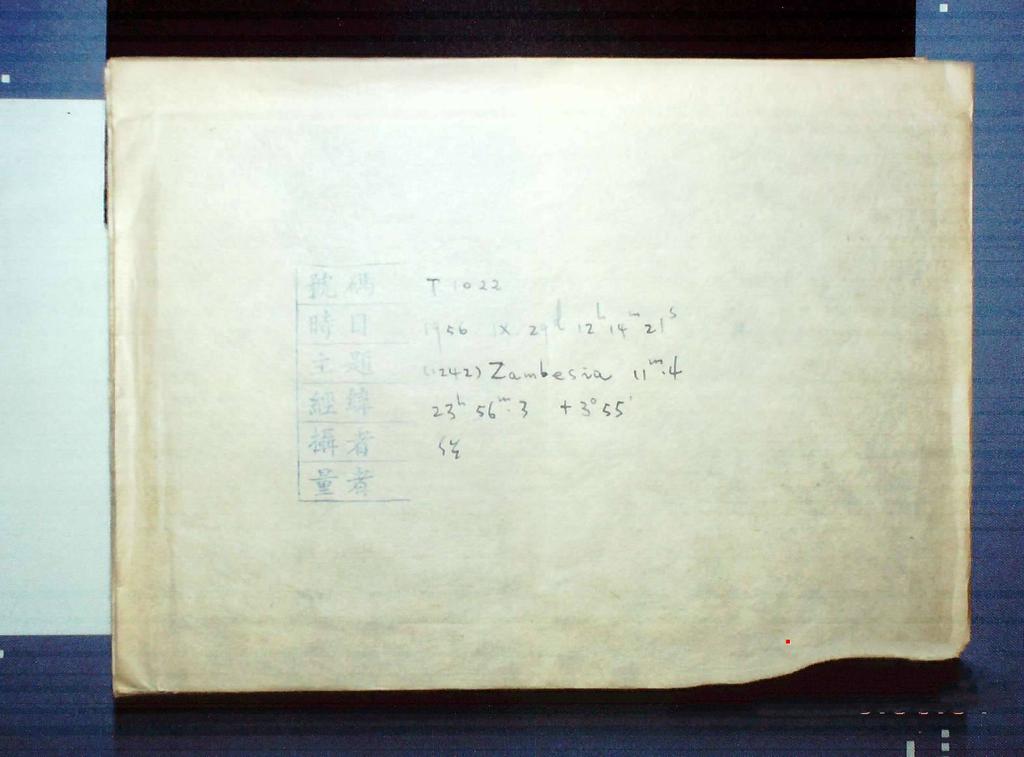 號碼 T 1022
時日 1956 IX 29d 12h 14m 21s
主題 (1242) Zambesia 11m.4
經緯 23h 56m.3 +3°55'
攝者
量者